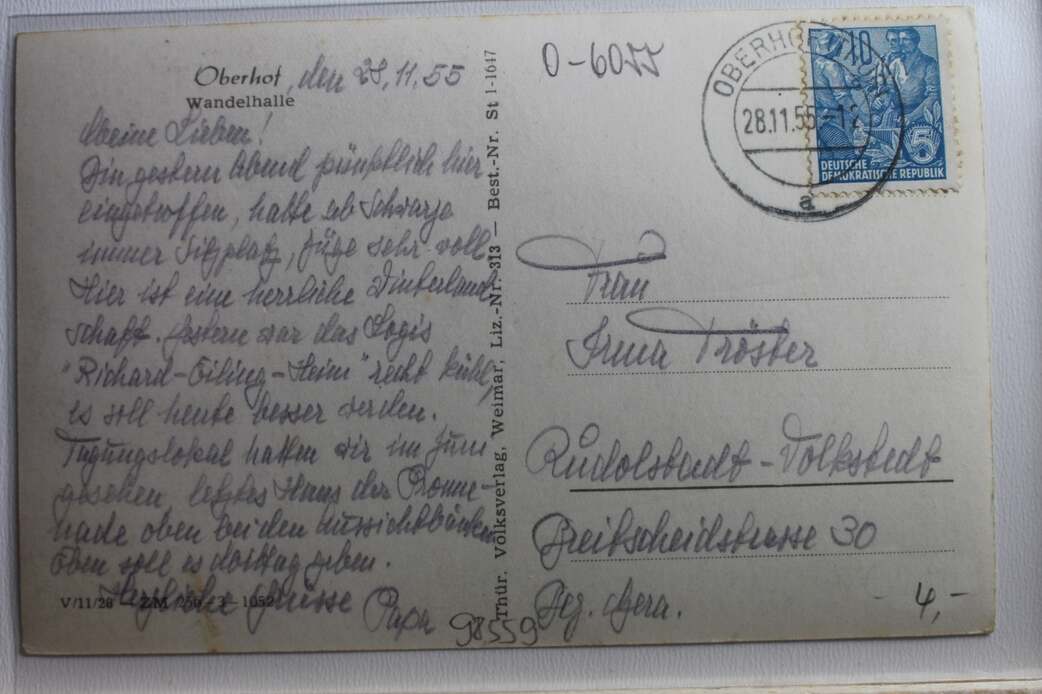 Oberhof, den 28.11.55
Wandelhalle
Meine Lieben!
Bin gestern Abend pünktlich hier
eingetroffen, hatte ab Schwarza
immer Sitzplatz, Züge sehr voll.
Hier ist eine herrliche Winterland-
schaft. Gestern war das Logis
"Richard-Eiling-Heim" recht kühl,
es soll heute besser werden.
Tagungslokal hatten wir im Juni
gesehen letztes Haus der Prome-
nade oben bei den Aussichtbänken
Oben soll es Mittag geben.
Herzliche Grüsse
Papa
V/11/28
Thür. Volksverlag, Weimar, Liz.-Nr. 313 — Best.-Nr. St 1-1647
0-6055
OBERHOF
28.11.55
a
10
5
DEUTSCHE
DEMOKRATISCHE REPUBLIK
Frau
Irma Tröster
Rudolstadt-Volkstedt
Breitscheidstrasse 30
Bez. Gera.
4,-
98559